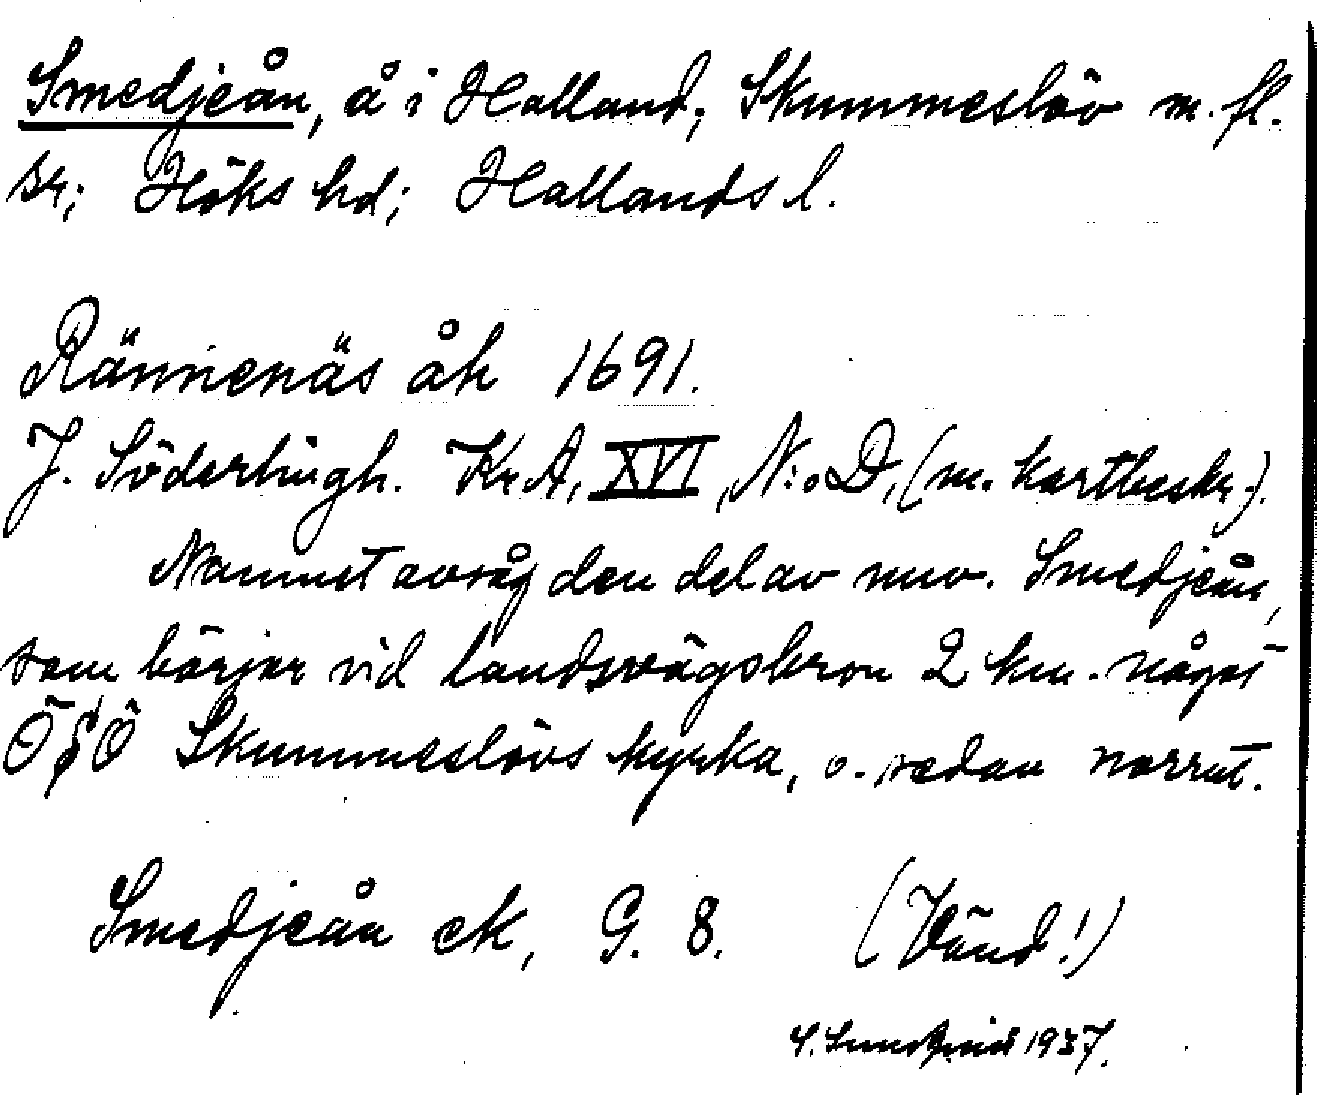 Smedjeån, å i Halland; Skummeslöv m. fl.
sr; Höks hd; Hallands l.
Rännenäs åh 1691.
J. Söderlingh. Kr.A, XVI, N:o D, (m. kartbeskr.).
Namnet avsåg den del av nuv. Smedjeån,
som börjar vid landsvägsbron 2 km. något
ÖSÖ Skummeslövs kyrka, o. sedan norrut.
Smedjeån ek, G. 8. (Vänd!)
1937.